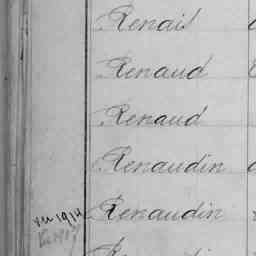 Renais
Renaud
Renaud
Renaudin
vu 1914
Renaudin